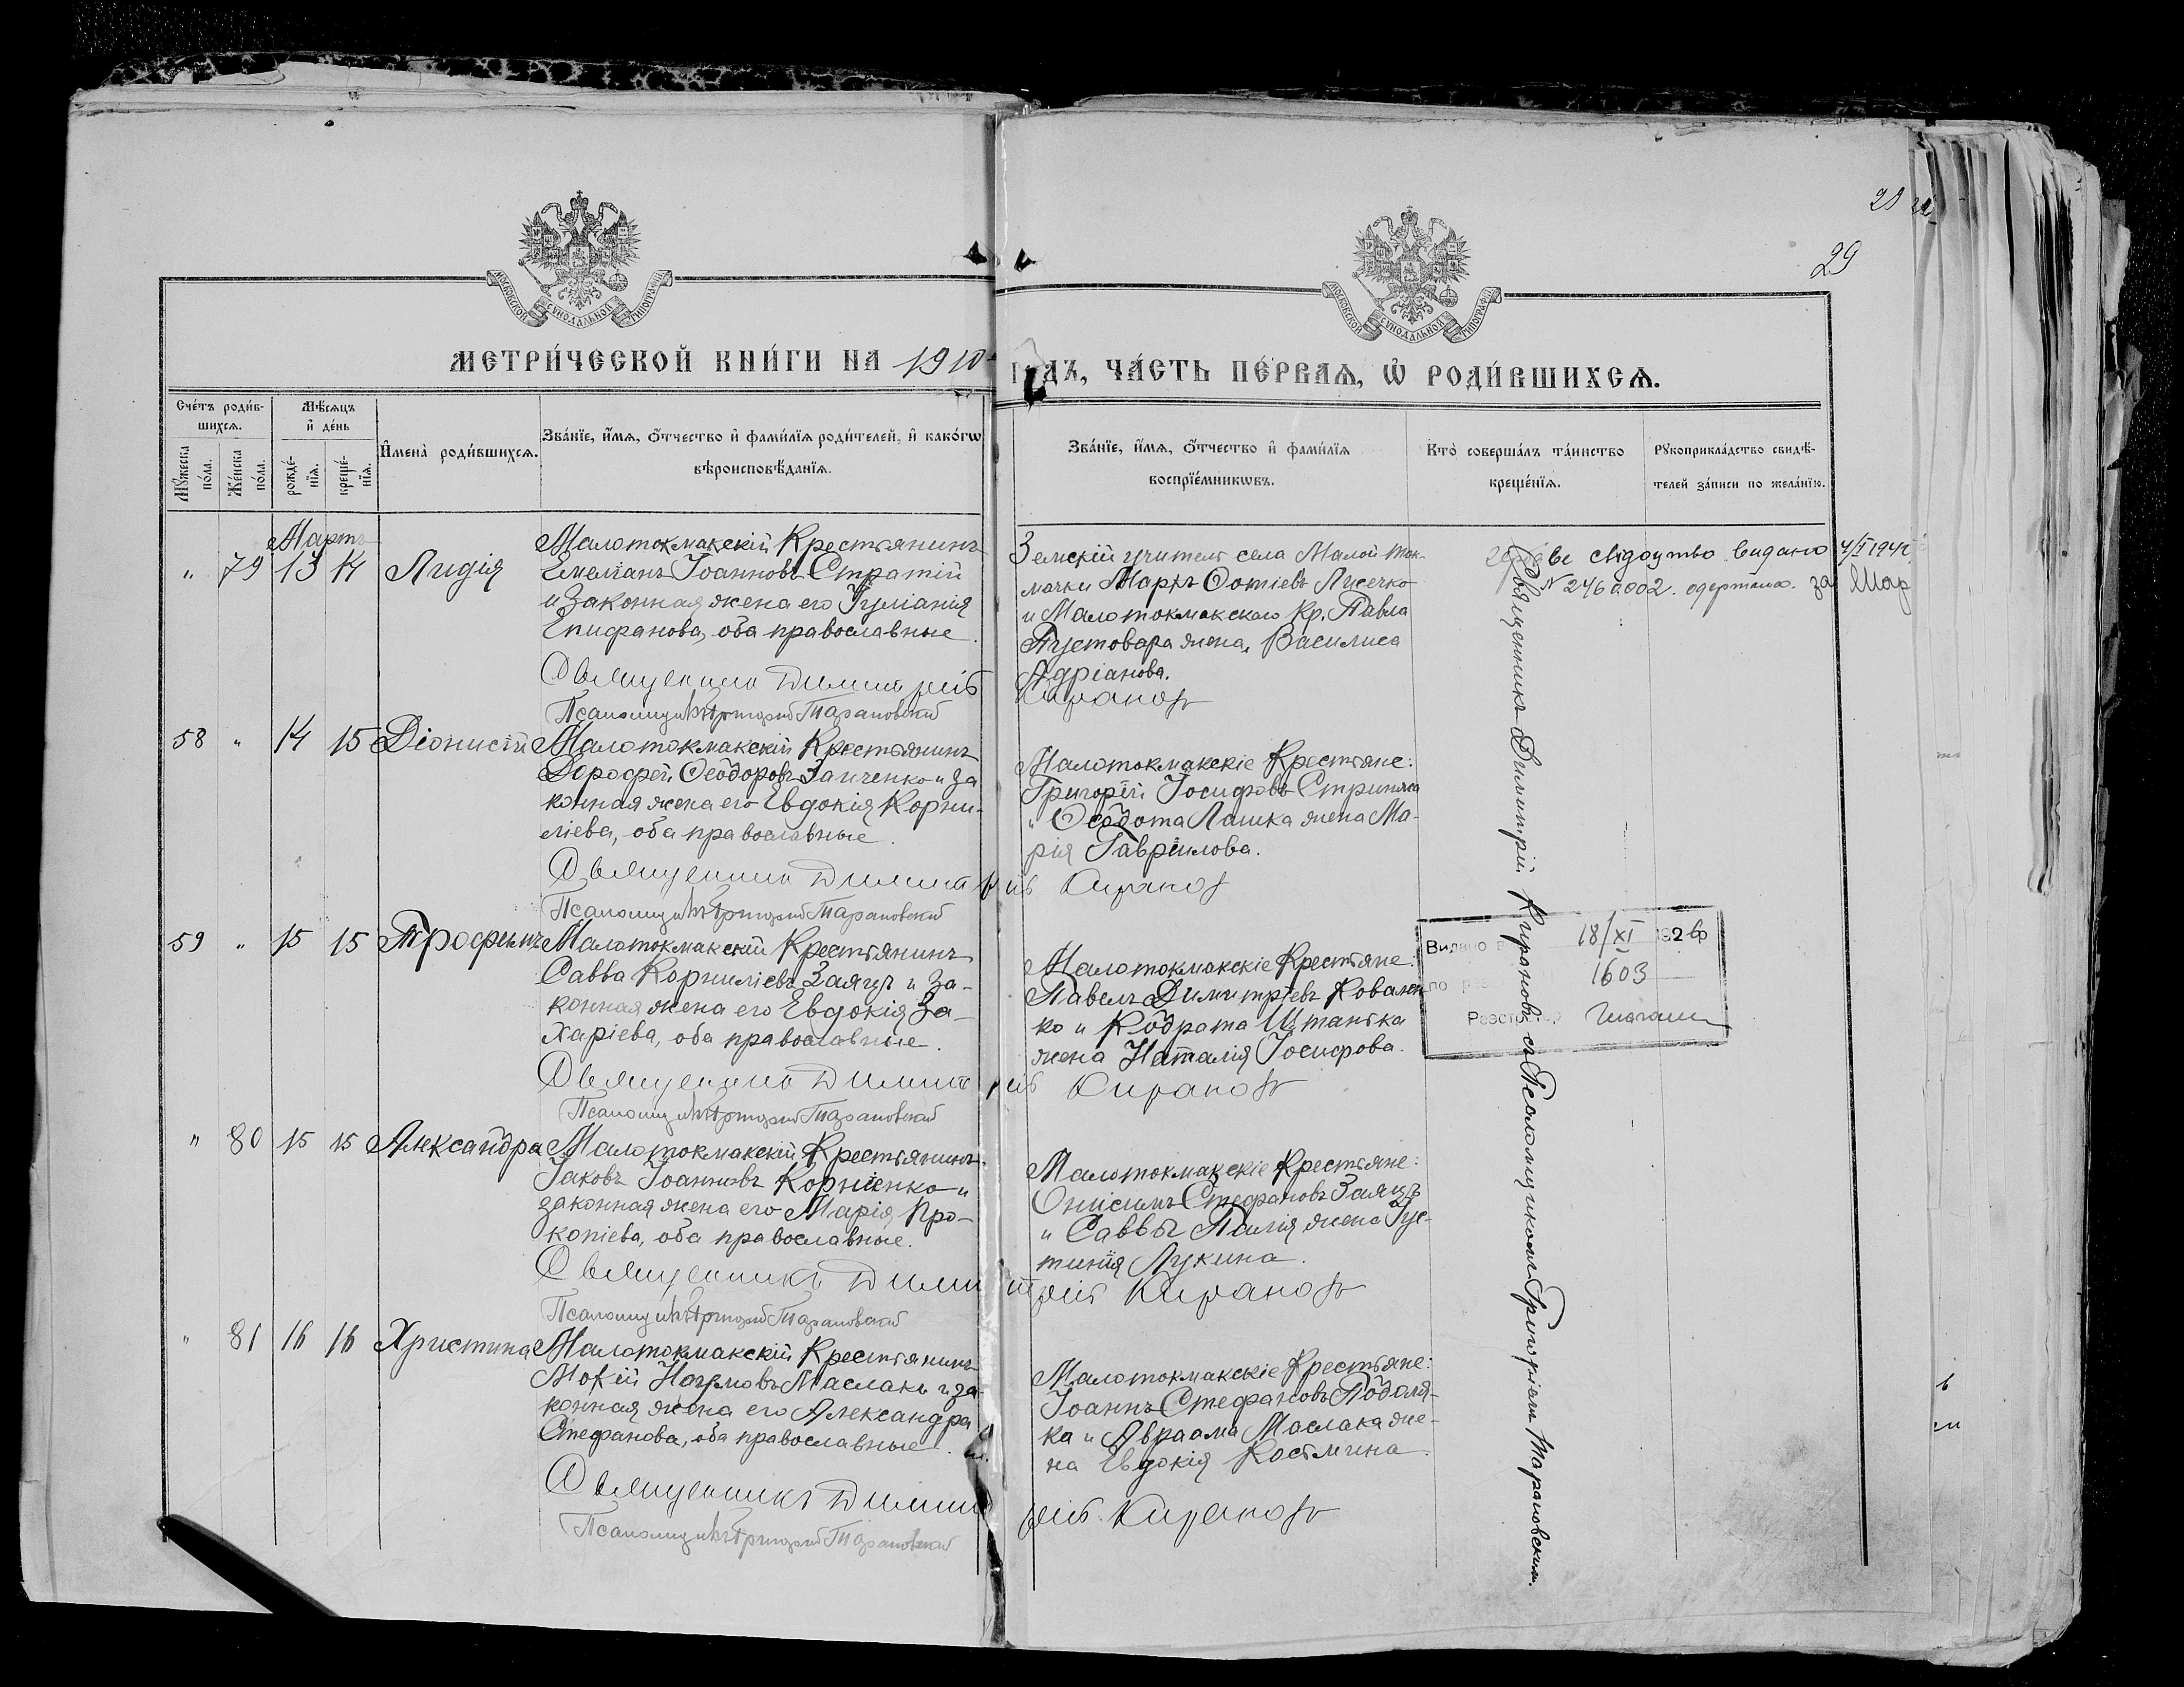 29
МОСКОВСКОЙ СѴНОДАЛЬНОЙ ТИПОГРАФІИ
МОСКОВСКОЙ СѴНОДАЛЬНОЙ ТИПОГРАФІИ
МЕТРИ́ЧЕСКОЙ КНИ́ГИ НА 1910
ГОДЪ, ЧА́СТЬ ПЕ́РВАѦ, Ѡ РОДИ́ВШИХСѦ.
Сче́тъ роди́в-
шихсѧ.
Мꙋ́жеска
по́ла.
Же́нска
по́ла.
Мѣ́сѧцъ
и҆ де́нь
рожде́-
нїѧ.
креще́-
нїѧ.
И҆мена̀ роди́вшихсѧ.
Зва́нїе, и҆́мѧ, ѻ҆́тчество и҆ фами́лїѧ роди́телей, и҆ како́гѡ
вѣроисповѣ́данїѧ.
Зва́нїе, и҆́мѧ, ѻ҆́тчество и҆ фами́лїѧ
воспрїе́мникѡвъ.
Кто̀ соверша́лъ та́инство
креще́нїѧ.
Рꙋкоприкла́дство свидѣ́-
телей за́писи по жела́нїю.
Мартъ
" 79 13 14 Лидія
Малотокмакскій Крестьянинъ
Емелианъ Іоанновъ Стратій
и законная жена его Іуліанія
Епифанова, оба православные.
Священникъ Димитрій Кирановъ
Псаломщикъ Григорій Тарановскій
Земскій учитель села Малой Ток-
мачки Маркъ Фотіевъ Лисечко
и Малотокмакскаго Кр. Павла
Пустовара жена, Василиса
Адріанова.
видано 4/I 1942
№ 2460.002. одержано. за
58 " 14 15 Діонисій
Малотокмакскій Крестьянинъ
Дорофей Ѳеодоровъ Заиченко и за
конная жена его Евдокія Корни-
ліева, оба православные.
Священникъ Димитрій Кирановъ
Псаломщикъ Григорій Тарановскій
Малотокмакскіе Крестьяне:
Григорій Іосифовъ Стрипяса
и Ѳеодота Лашка жена Ма-
рія Гавріилова.
59 " 15 15 Трофимъ
Малотокмакскій Крестьянинъ
Савва Корниліевъ Заяцъ и за-
конная жена его Евдокія За-
харіева, оба православные.
Священникъ Димитрій Кирановъ
Псаломщикъ Григорій Тарановскій
Малотокмакскіе Крестьяне:
Павелъ Димитріевъ Ковален
ко и Кодрата Штанька
жена Наталія Іосифова.
Видано 18/XI 1926р
по 1603
" 80 15 15 Александра
Малотокмакскій Крестьянинъ
Іаковъ Іоанновъ Корніенко и
законная жена его Марія Про-
копіева, оба православные.
Священникъ Димитрій Кирановъ
Псаломщикъ Григорій Тарановскій
Малотокмакскіе Крестьяне:
Онисимъ Стефановъ Заяцъ
и Саввы Палія жена Іус-
тинія Лукина.
" 81 16 16 Христина
Малотокмакскій Крестьянинъ
Мокій Наумовъ Маслакъ и за-
конная жена его Александра
Стефанова, оба православные.
Священникъ Димитрій Кирановъ
Псаломщикъ Григорій Тарановскій
Малотокмакскіе Крестьяне:
Іоаннъ Стефановъ Подоля-
ка и Авраама Маслака же-
на Евдокія Космина.
Священникъ Димитрій Кирановъ съ Псаломщикомъ Григоріемъ Тарановскимъ.